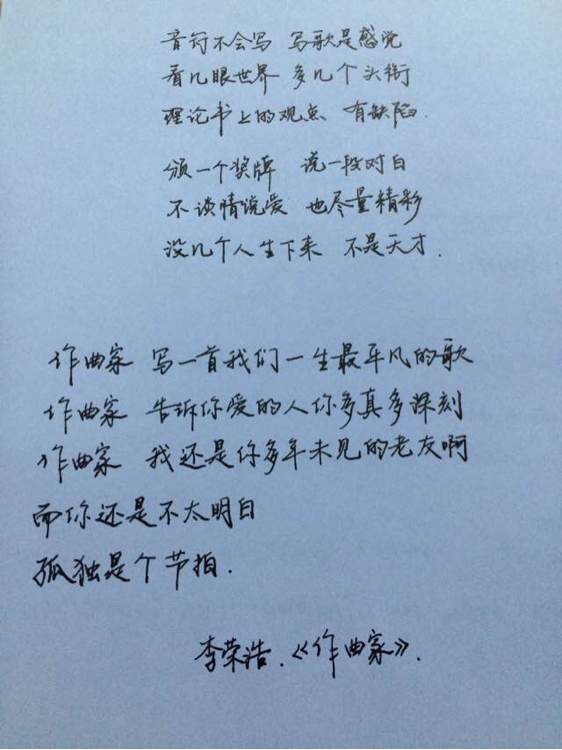 音符不会写 写歌是感觉
看几眼世界 多几个头衔
理论书上的观点 有缺陷.
颁一个奖牌 说一段对白
不谈情说爱 也尽量精彩
没几个人生下来 不是天才.
作曲家 写一首我们一生最平凡的歌
作曲家 告诉你爱的人你多真多深刻
作曲家 我还是你多年未见的老友啊
而你还是不太明白
孤独是个节拍.
李荣浩.《作曲家》.